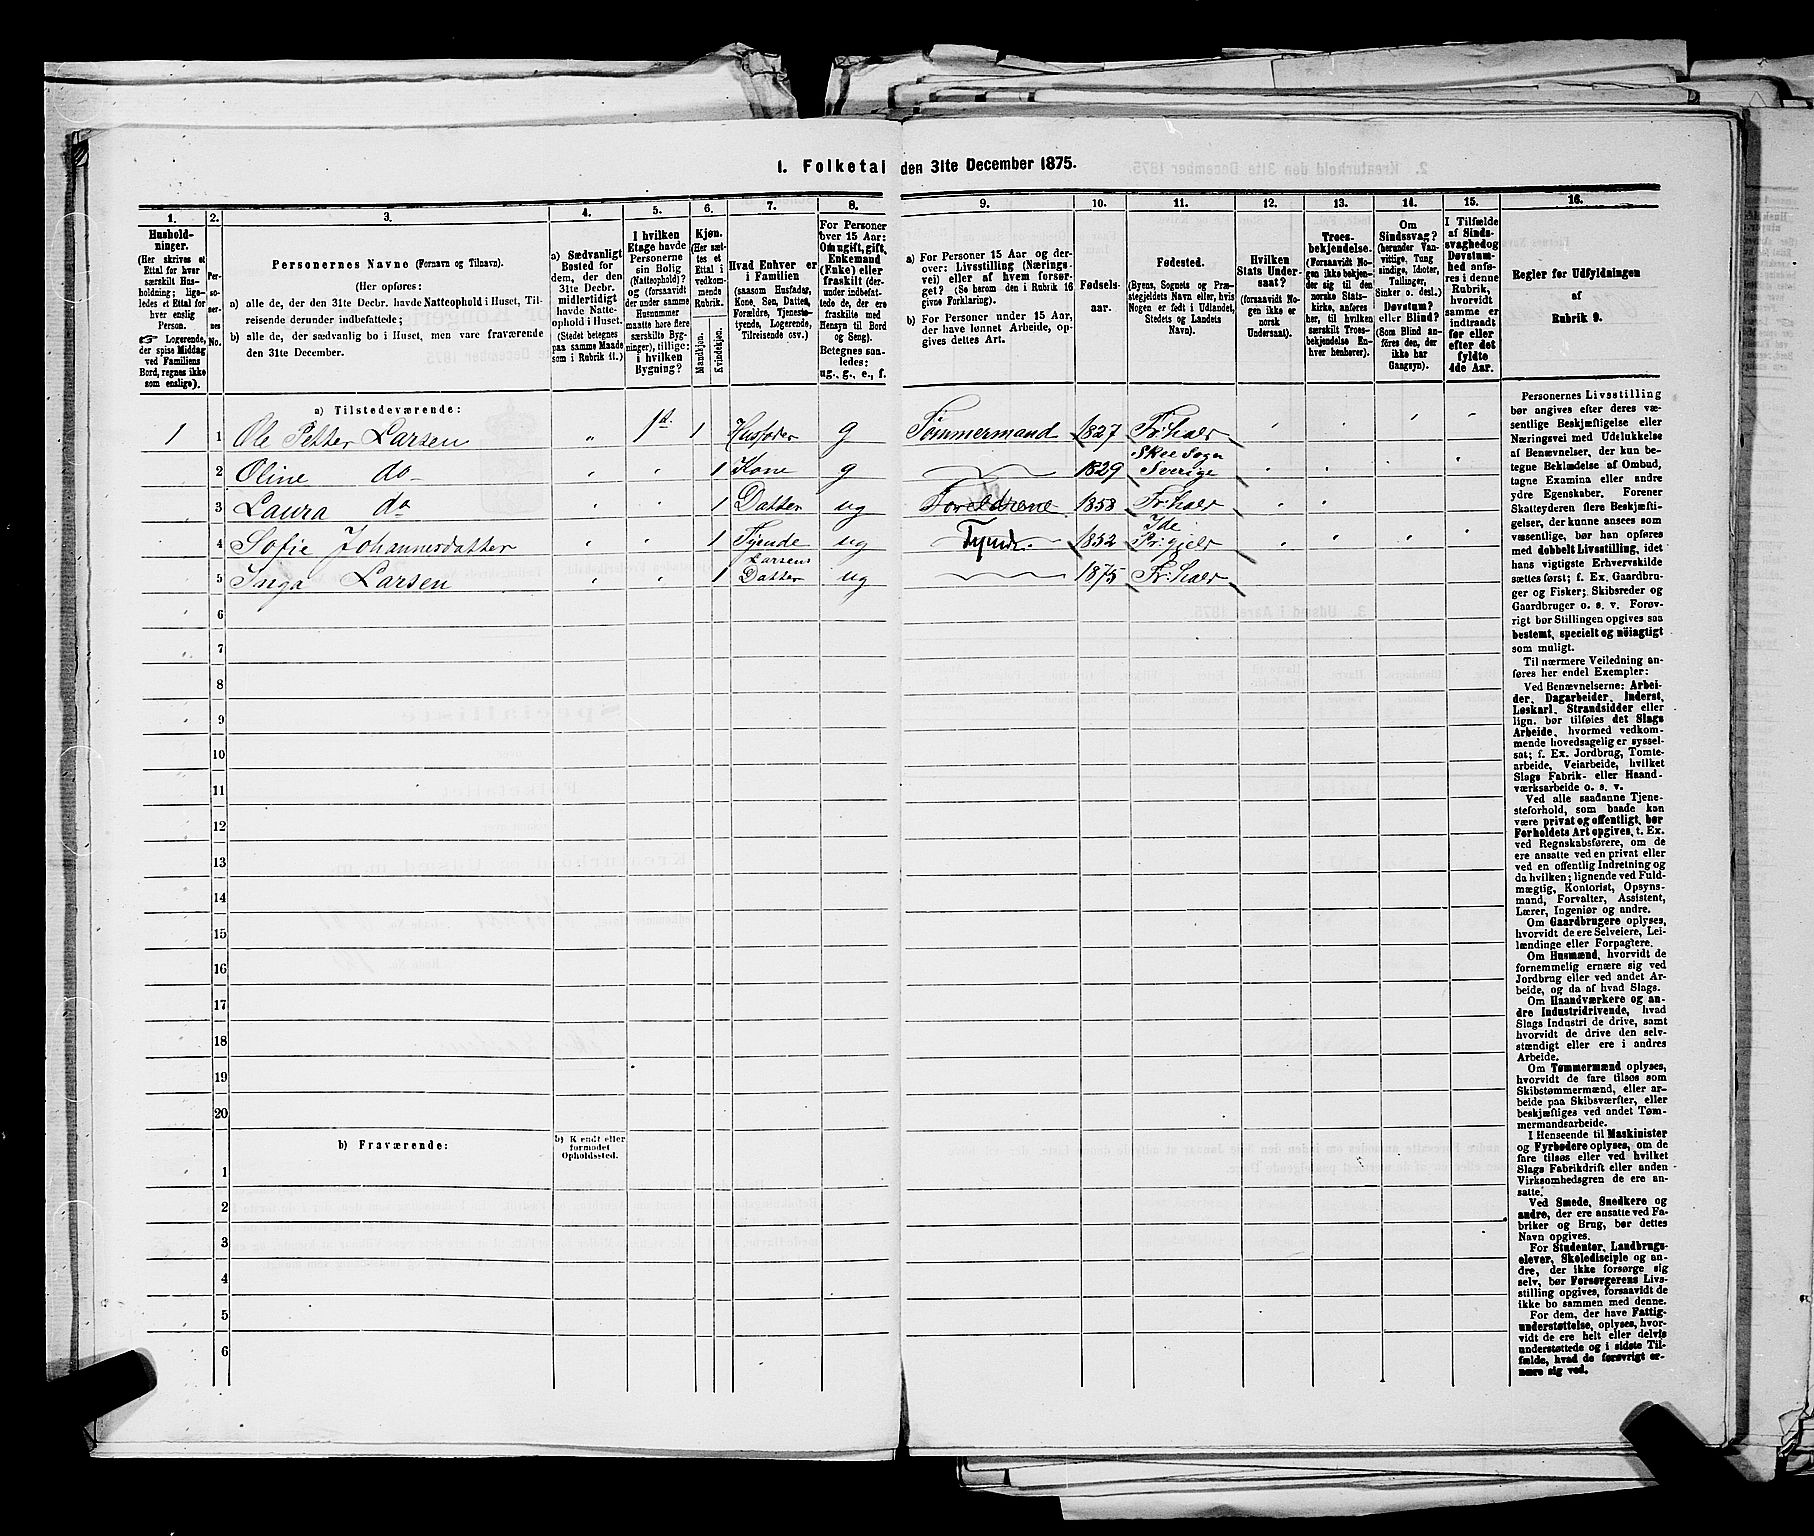 1. Folketal den 31te December 1875.
1.
Hushold-
ninger.
(Her skrives et
Ettal for hver
særskilt Hus-
holdning; lige-
ledes et Ettal for
hver enslig
Person.
☞ Logerende,
der spise Middag
ved Familiens
Bord, regnes ikke
som enslige).
2.
Per-
so-
ner-
nes
No.
3.
Personernes Navne (Fornavn og Tilnavn).
(Her opføres:
a) alle de, der den 31te Decbr. havde Natteophold i Huset, Til-
reisende derunder indbefattede;
b) alle de, der sædvanlig bo i Huset, men vare fraværende
den 31te December.
4.
a) Sædvanligt
Bosted for
dem, der den
31te Decbr.
midlertidigt
havde Natte-
ophold i Huset.
(Stedet betegnes
paa samme Maade
som i Rubrik 11.)
5.
I hvilken
Etage havde
Personerne
sin Bolig
(Natteophold)?
og (forsaavidt
der under samme
Husnummer
maatte høre flere
særskilte Byg-
ninger), tillige:
i hvilken
Bygning?
6.
Kjøn.
(Her sæt-
tes et
Ettal i
vedkom-
mende
Rubrik.
Mandkjøn.
Kvindekjøn.
7.
Hvad Enhver er
i Familien
(saasom Husfader,
Kone, Søn, Datter,
Forældre, Tjeneste-
tyende, Logerende,
Tilreisende osv.)
8.
For Personer
over 15 Aar:
Om ugift, gift,
Enkemand
(Enke) eller
fraskilt (der-
under indbefat-
tede de, der ere
fraskilte med
Hensyn til Bord
og Seng).
Betegnes saa-
ledes:
ug., g., e., f.
9.
a) For Personer 15 Aar og der-
over: Livsstilling (Nærings-
vei) eller af hvem forsør-
get? (Se herom den i Rubrik 16
givne Forklaring).
b) For Personer under 15 Aar,
der have lønnet Arbeide, op-
gives dettes Art.
10.
Fødsels-
aar.
11.
Fødested.
(Byens, Sognets og Præ-
stegjeldets Navn eller, hvis
Nogen er født i Udlandet,
Stedets og Landets
Navn).
12.
Hvilken
Stats Under-
saat?
(forsaavidt No-
gen ikke er
norsk
Undersaat).
13.
Troes-
bekjendelse.
(Forsaavidt No-
gen ikke bekjen-
der sig til den
norske Stats-
kirke, anføres
her, til hvilken
særskilt Troes-
bekjendelse En-
hver henhører).
14.
Om
Sindssvag?
(herunder Van-
vittige, Tung
sindige, Idioter,
Tullinger,
Sinker o. desl.)
Døvstum?
eller Blind?
(Som Blind an-
føres den, der
ikke har
Gangsyn).
15.
I Tilfælde
af Sinds-
svaghed og
Døvstum-
hed anfø-
res i denne
Rubrik,
hvorvidt
samme er
indtraadt
før eller
efter det
fyldte
4de Aar.
16.
Regler for Udfyldningen
af
Rubrik 9.
a) Tilstedeværende:
1 1 Ole Petter Larsen " 1st 1 Husfader g Tømmermand 1827 Fr:hald
2 Oline do " " 1 Kone g 1829 Skee Sogn Sverige
3 Laura do " " 1 Datter ug Foreldrene 1858 Fr:hald
4 Sofie Johannesdatter " " 1 Tyende ug Tyende. 1852 Ide Pr:gjeld
5 Inga Larsen " " 1 Larsens Datter ug 1875 Fr:hald
6
7
8
9
10
11
12
13
14
15
16
17
18
19
20
b) Fraværende:
b) Kjendt eller
formodet
Opholdssted.
1
2
3
4
5
6
Personernes Livsstilling
bør angives efter deres væ-
sentlige Beskjæftigelse eller
Næringsvei med Udelukkelse
af Benævnelser, der kun be-
tegne Beklædelse af Ombud,
tagne Examina eller andre
ydre Egenskaber. Forener
Skatteyderen flere Beskjæfti-
gelser, der kunne ansees som
væsentlige, bør han opføres
med dobbelt Livsstilling, idet
hans vigtigste Erhvervskilde
sættes først; f. Ex. Gaardbru-
ger og Fisker; Skibsreder og
Gaardbruger o. s. v. Forøv-
rigt bør Stillingen opgives saa
bestemt, specielt og nöiagtigt
som muligt.
Til nærmere Veiledning an-
føres her endel Exempler:
Ved Benævnelserne: Arbei-
der, Dagarbeider, Inderst,
Løskarl, Strandsidder eller
lign. bør tilføies det Slags
Arbeide, hvormed vedkom-
mende hovedsagelig er syssel-
sat; f. Ex. Jordbrug, Tomte-
arbeide, Veiarbeide, hvilket
Slags Fabrik- eller Haand-
værksarbeide o. s. v.
Ved alle saadanne Tjene-
steforhold, som baade kan
være privat og offentligt, bør
Forholdets Art opgives, t. Ex.
ved Regnskabsførere, om de
ere ansatte ved en privat eller
ved en offentlig Indretning og
da hvilken; lignende ved Fuld-
mægtig, Kontorist, Opsyns-
mand, Forvalter, Assistent,
Lærer, Ingeniør og andre.
Om Gaardbrugere oplyses,
hvorvidt de ere Selveiere, Lei-
lændinge eller Forpagtere.
Om Husmænd, hvorvidt de
fornemmelig ernære sig ved
Jordbrug eller ved andet Ar-
beide, og da af hvad Slags.
Om Haandværkere og an-
dre Industridrivende, hvad
Slags Industri de drive, samt
hvorvidt de drive den selv-
stændigt eller ere i andres
Arbeide.
Om Tømmermænd oplyses,
hvorvidt de fare tilsøs som
Skibstømmermænd, eller ar-
beide paa Skibsværfter, eller
beskjæftiges ved andet Tøm-
mermandsarbeide.
I Henseende til Maskinister
og Fyrbødere oplyses, om de
fare tilsøs eller ved hvilket
Slags Fabrikdrift eller anden
Virksomhedsgren de ere an-
satte.
Ved Smede, Snedkere og
andre, der ere ansatte ved Fa-
briker og Brug, bør dettes
Navn opgives.
For Studenter, Landbrugs-
elever, Skoledisciple og an-
dre, der ikke forsørge sig
selv, bør Forsørgerens Livs-
stilling opgives, forsaavidt de
ikke bo sammen med denne.
For dem, der have Fattig-
understøttelse, oplyses, hvor-
vidt de ere helt eller delvis
understøttede og i sidste Til-
fælde, hvad de forøvrigt er-
nære sig ved.